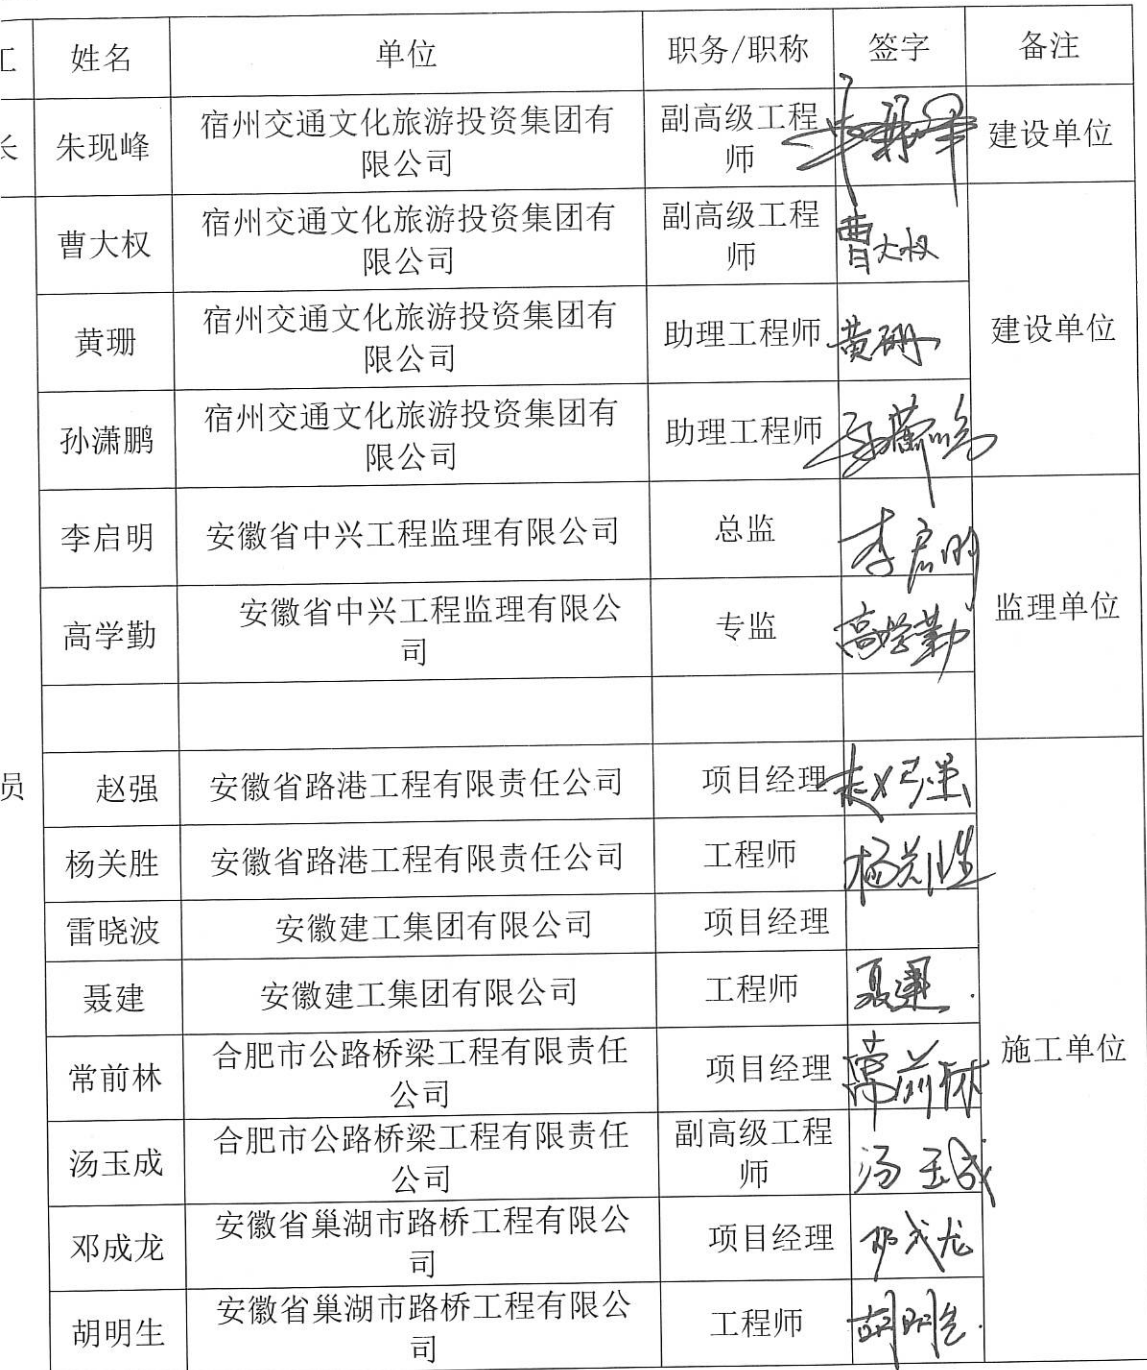 工 姓名 单位 职务/职称 签字 备注
长 朱现峰 宿州交通文化旅游投资集团有限公司 副高级工程师 朱现峰 建设单位
曹大权 宿州交通文化旅游投资集团有限公司 副高级工程师 曹大权 建设单位
黄珊 宿州交通文化旅游投资集团有限公司 助理工程师 黄珊
孙潇鹏 宿州交通文化旅游投资集团有限公司 助理工程师 孙潇鹏
李启明 安徽省中兴工程监理有限公司 总监 李启明 监理单位
高学勤 安徽省中兴工程监理有限公司 专监 高学勤
员 赵强 安徽省路港工程有限责任公司 项目经理 赵强 施工单位
杨关胜 安徽省路港工程有限责任公司 工程师 杨关胜
雷晓波 安徽建工集团有限公司 项目经理
聂建 安徽建工集团有限公司 工程师 聂建
常前林 合肥市公路桥梁工程有限责任公司 项目经理 常前林
汤玉成 合肥市公路桥梁工程有限责任公司 副高级工程师 汤玉成
邓成龙 安徽省巢湖市路桥工程有限公司 项目经理 邓成龙
胡明生 安徽省巢湖市路桥工程有限公司 工程师 胡明生